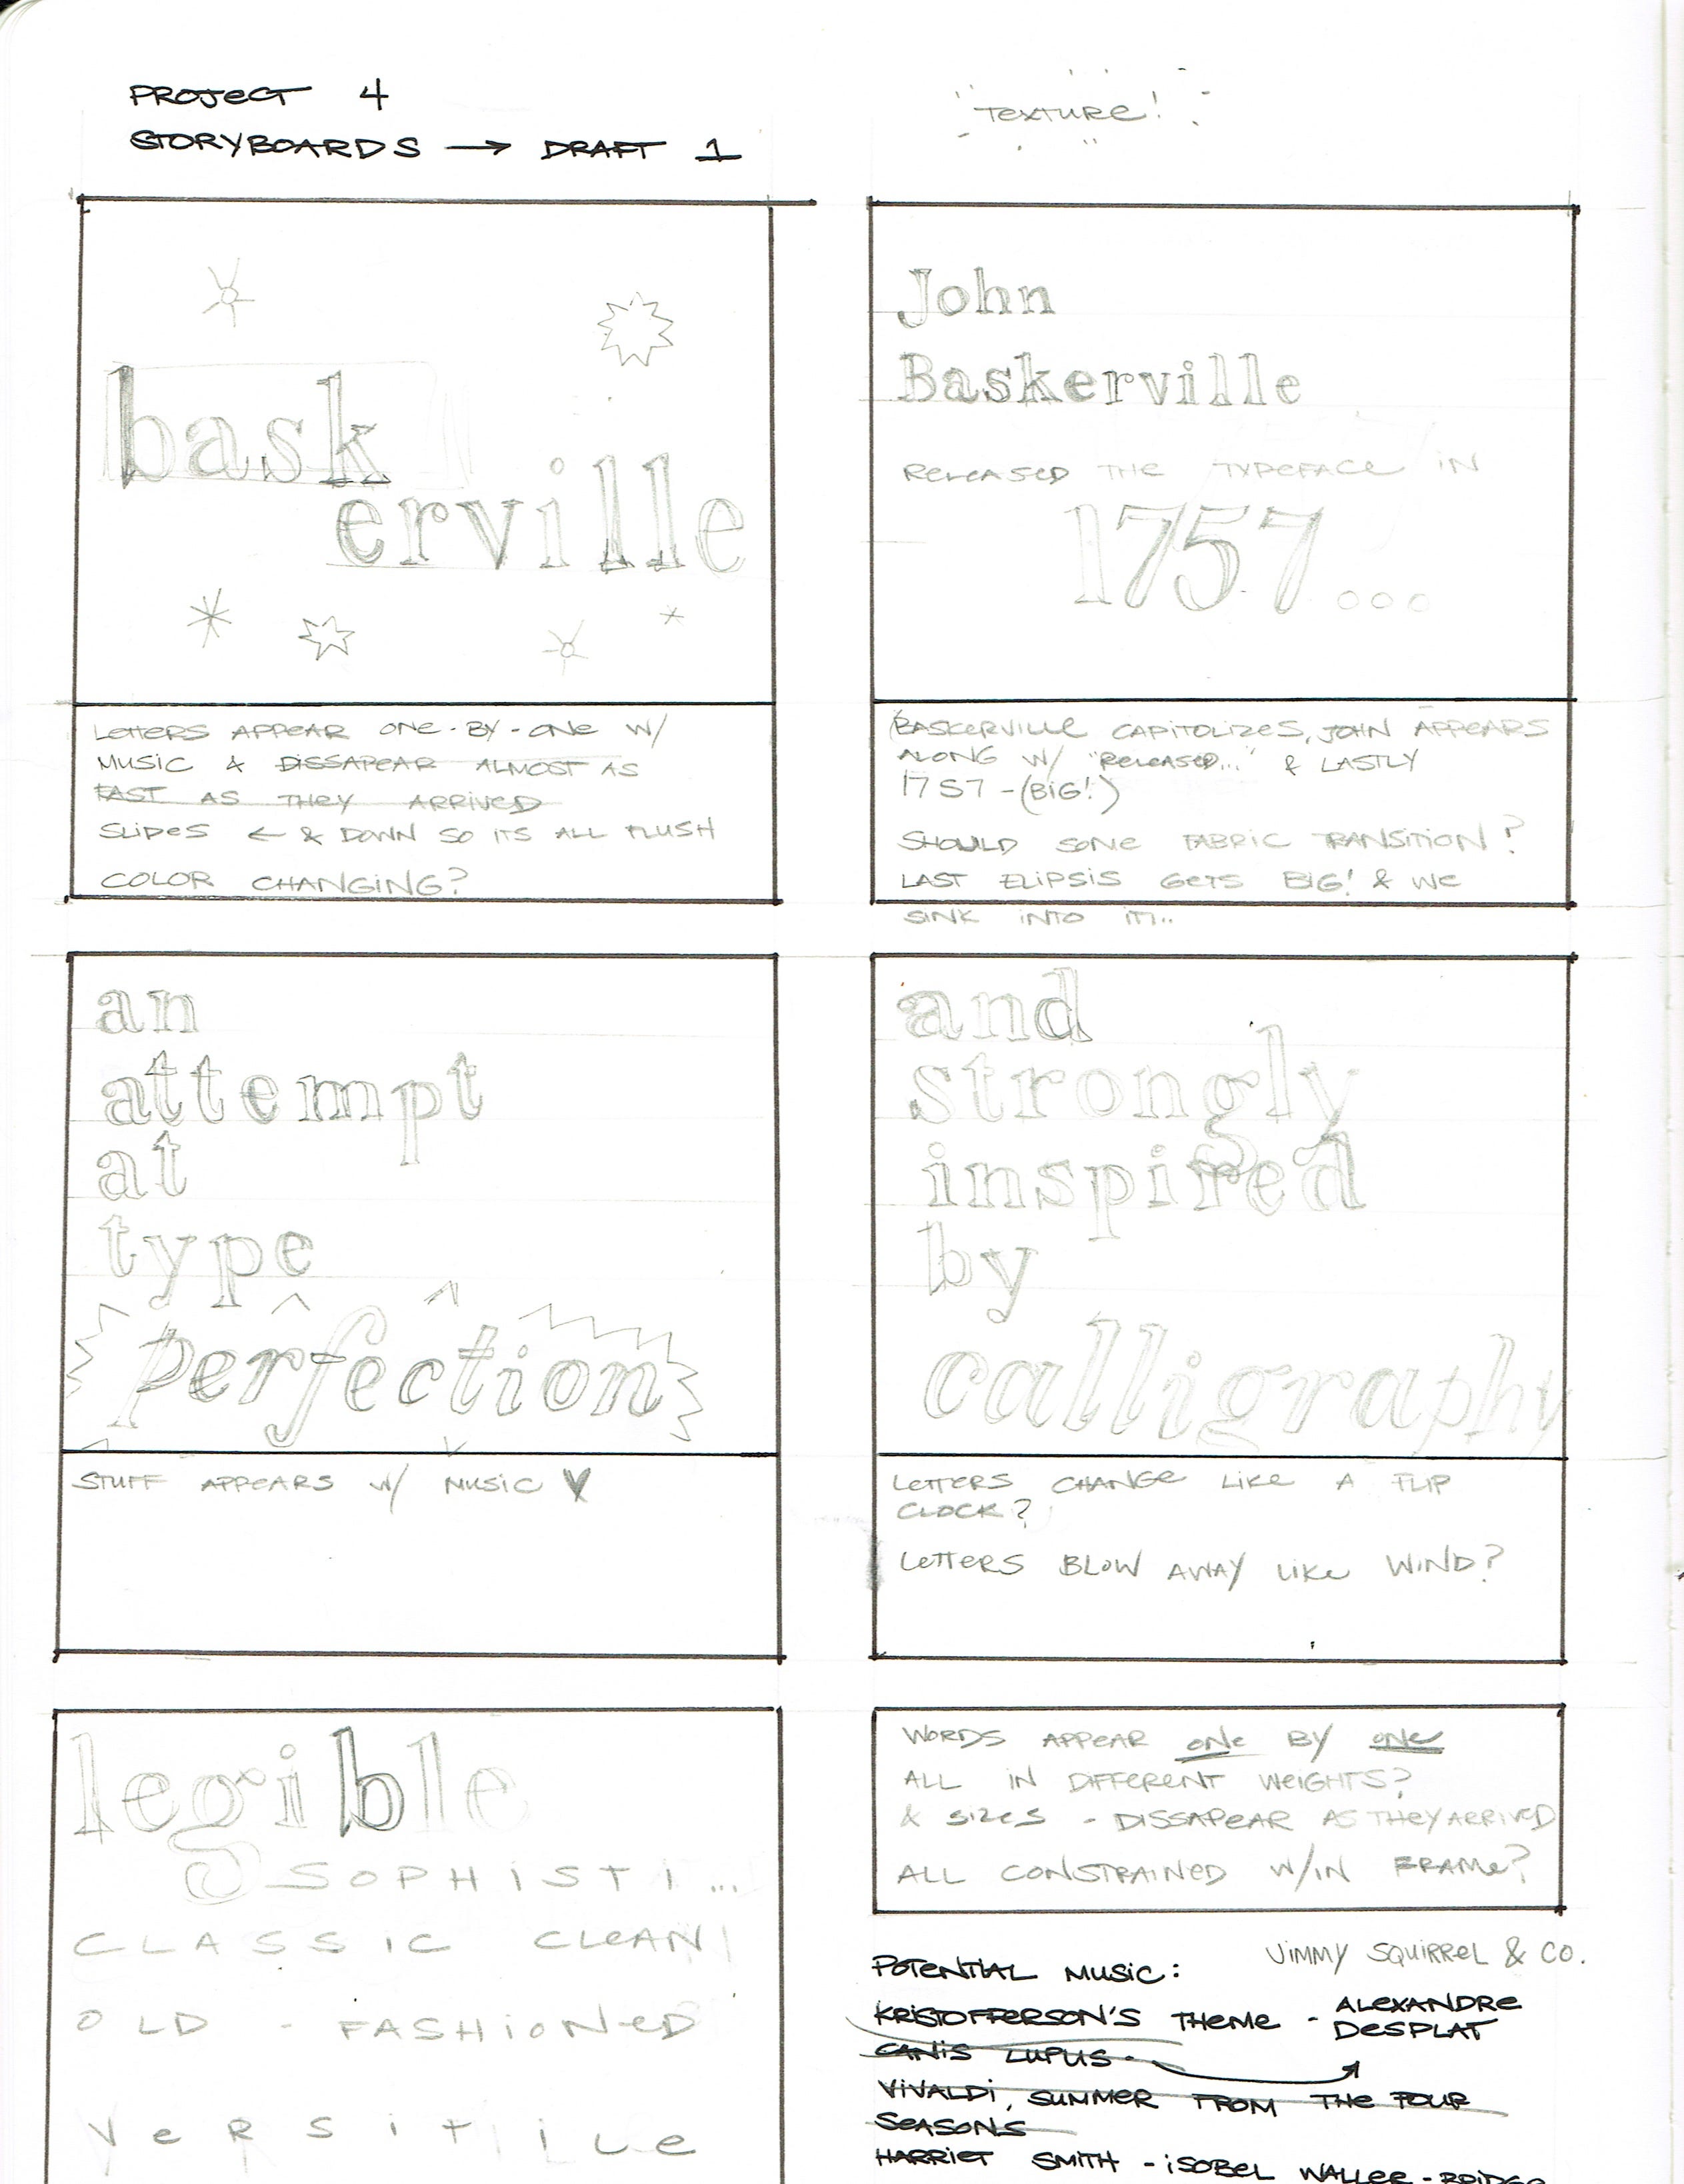 PROJECT 4
STORYBOARDS → DRAFT 1
TEXTURE!
bask
erville
LETTERS APPEAR ONE-BY-ONE W/
MUSIC & DISSAPEAR ALMOST AS
FAST AS THEY ARRIVED
SLIDES ← & DOWN SO ITS ALL FLUSH
COLOR CHANGING?
John
Baskerville
RELEASED THE TYPEFACE IN
1757...
BASKERVILLE CAPITOLIZES, JOHN APPEARS
ALONG W/ "RELEASED..." & LASTLY
1757 - (BIG!)
SHOULD SOME FABRIC TRANSITION?
LAST ELIPSIS GETS BIG! & WE
SINK INTO IT...
an
attempt
at
type
perfection
STUFF APPEARS W/ MUSIC ♥
and
strongly
inspired
by
calligraphy
LETTERS CHANGE LIKE A FLIP
CLOCK?
LETTERS BLOW AWAY LIKE WIND?
legible
SOPHISTI...
CLASSIC CLEAN
OLD - FASHIONED
VERSITILE
WORDS APPEAR ONE BY ONE
ALL IN DIFFERENT WEIGHTS?
& SIZES - DISSAPEAR AS THEY ARRIVED
ALL CONSTRAINED W/IN FRAME?
JIMMY SQUIRREL & CO.
POTENTIAL MUSIC:
KRISTOFFERSON'S THEME - ALEXANDRE
DESPLAT
CANIS LUPUS -
VIVALDI, SUMMER FROM THE FOUR
SEASONS
HARRIET SMITH - ISOBEL WALLER-BRIDGE